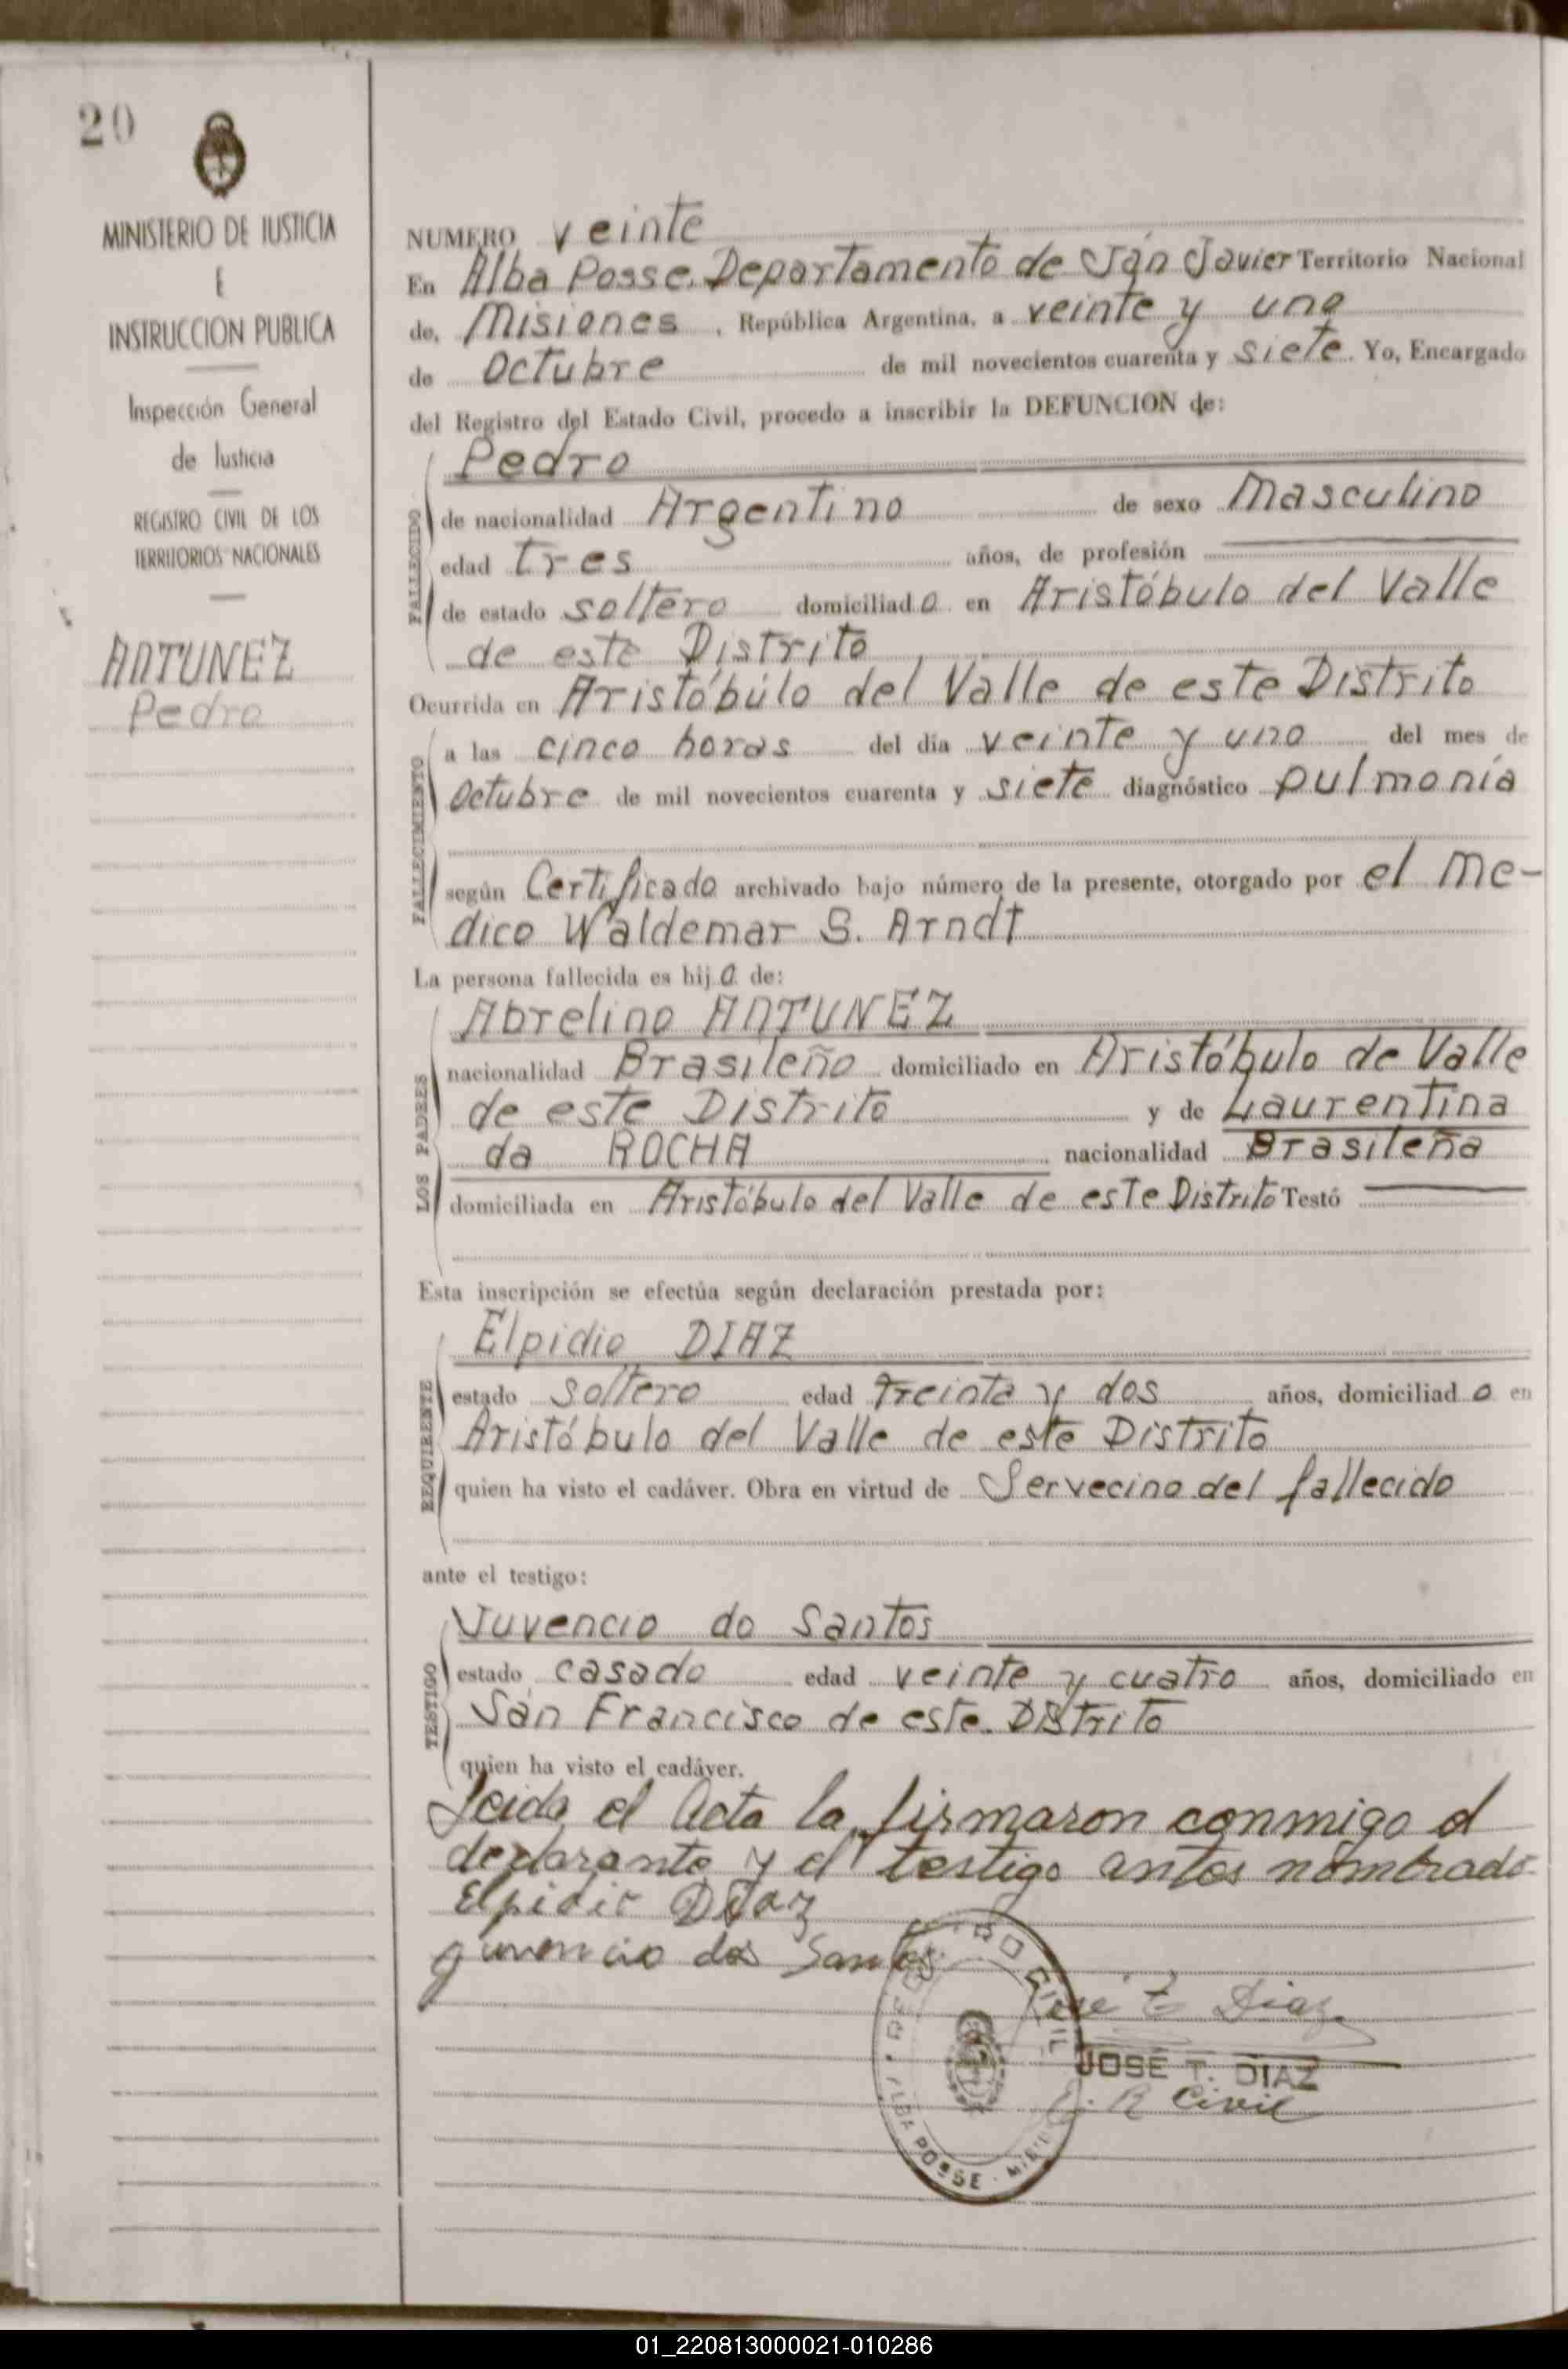 20
MINISTERIO DE JUSTICIA
E
INSTRUCCION PUBLICA
Inspección General
de Justicia
REGISTRO CIVIL DE LOS
TERRITORIOS NACIONALES
ANTUNEZ
Pedro
NUMERO veinte
En Alba Posse. Departamento de San Javier Territorio Nacional
de, Misiones, República Argentina, a veinte y uno
de Octubre de mil novecientos cuarenta y siete. Yo, Encargado
del Registro del Estado Civil, procedo a inscribir la DEFUNCION de:
Pedro
FALLECIDO
de nacionalidad Argentino de sexo Masculino
edad tres años, de profesión
de estado soltero domiciliado en Aristóbulo del Valle
de este Distrito
Ocurrida en Aristóbúlo del Valle de este Distrito
FALLECIMIENTO
a las cinco horas del día veinte y uno del mes de
Octubre de mil novecientos cuarenta y siete diagnóstico pulmonía
según Certificado archivado bajo número de la presente, otorgado por el Me-
dico Waldemar S. Arndt
La persona fallecida es hijo de:
LOS PADRES
Abrelino ANTUNEZ
nacionalidad Brasileño domiciliado en Aristóbulo de Valle
de este Distrito y de Laurentina
da ROCHA nacionalidad Brasileña
domiciliada en Aristóbulo del Valle de este Distrito Testó
Esta inscripción se efectúa según declaración prestada por:
REQUIRENTE
Elpidio DIAZ
estado soltero edad treinta y dos años, domiciliado en
Aristóbulo del Valle de este Distrito
quien ha visto el cadáver. Obra en virtud de Ser vecino del fallecido
ante el testigo:
TESTIGO
Juvencio do Santos
estado casado edad veinte y cuatro años, domiciliado en
San Francisco de este Distrito
quien ha visto el cadáver.
Leida el Acta la firmaron conmigo el
declarante y el testigo antes nombrado
Elpidio Diaz
juvencio dos Santos
José T. Diaz
JOSE T. DIAZ
E. R Civil
CIVIL
ALBA POSSE
01_220813000021-010286